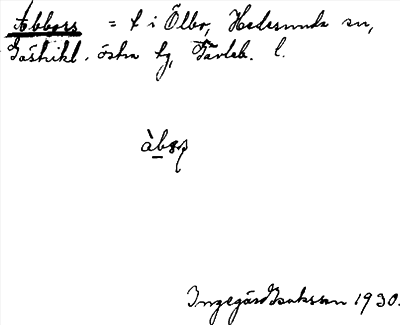 Abbors = t i Ölbo, Hedesunda sn,
Gästrikl. östra tg, Gävleb. l.
àbsş
Ingegärd Isaksson 1930.